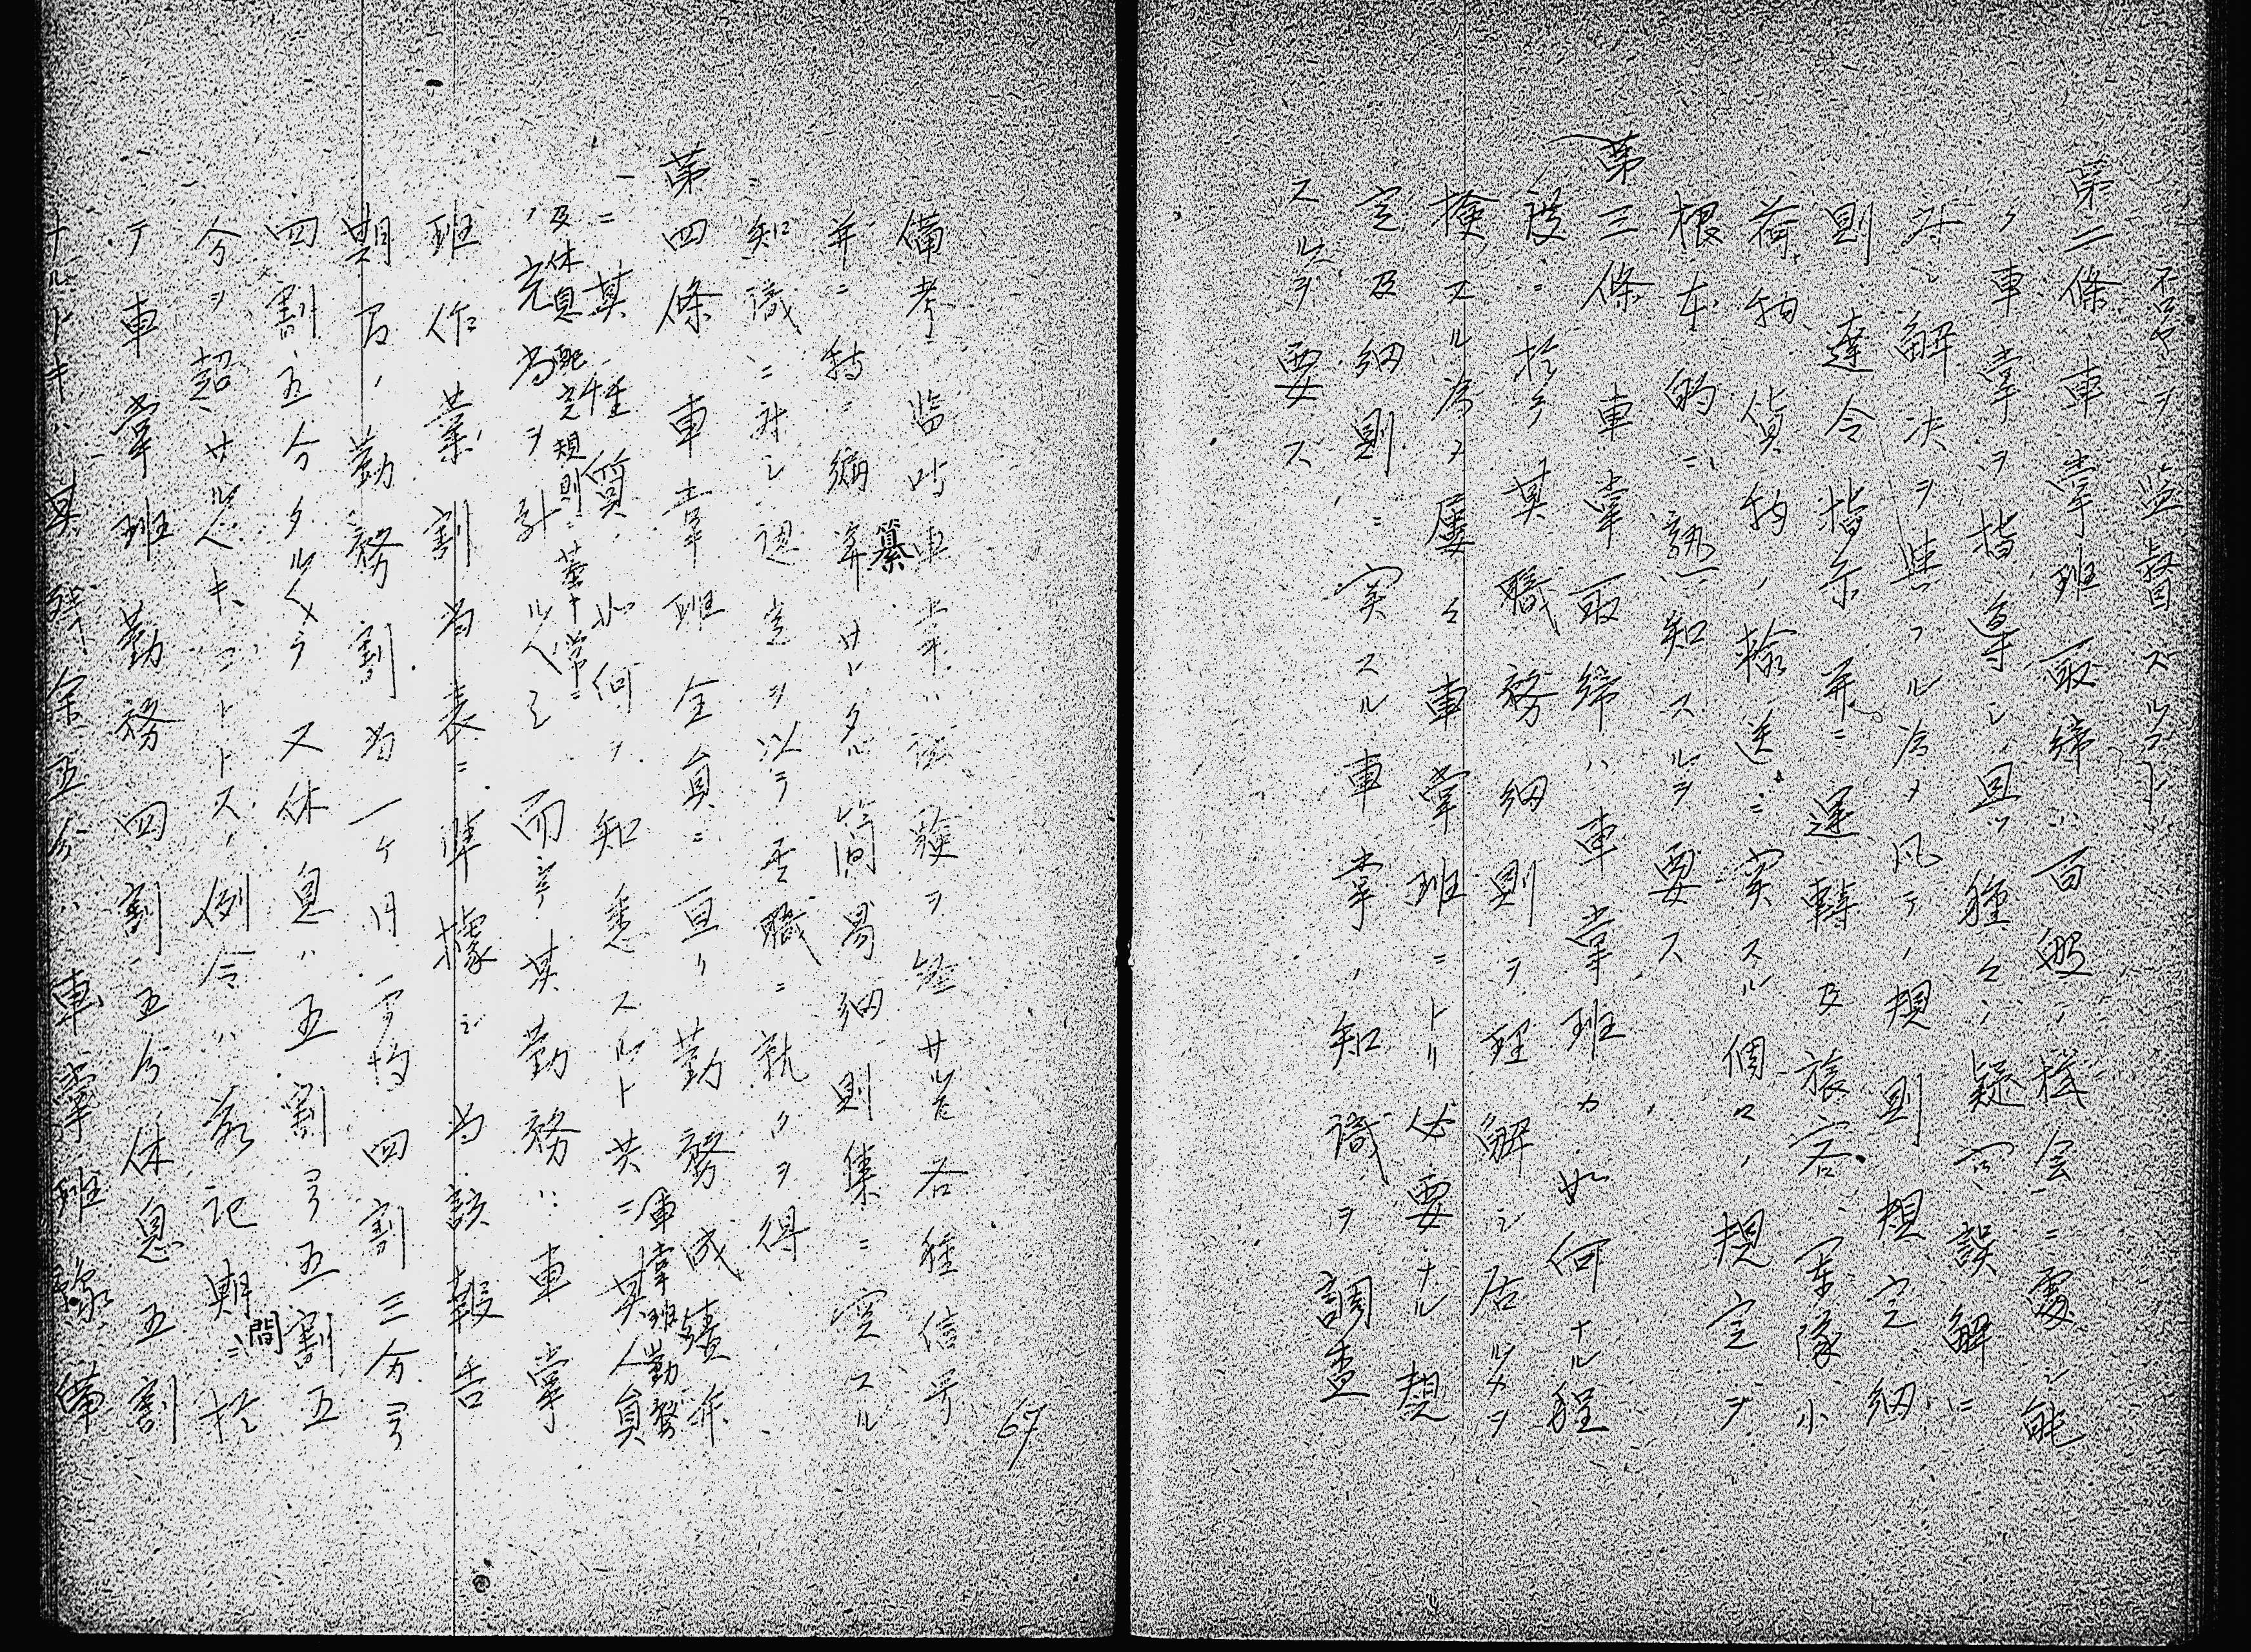 否ヤヲ監督スルコト
第二條 車掌班取締ハ百般ノ機会ニ處シ能
ク車掌ヲ指導シ且ツ種々ノ疑問誤解ニ
対シ解决ヲ與フル為メ凡テノ規則規定細
則達令指示并ニ運轉及旅客、軍隊小
荷物貨物ノ輸送ニ関スル個々ノ規定ヲ
根本的ニ熟知スルヲ要ス
第三條 車掌取締ハ車掌班カ如何ナル程
度ニ於テ其職務細則ヲ理解シ居ルヤヲ
検スル為メ屡々車掌班ニトリ必要ナル規
定及細則ニ関スル車掌ノ知識ヲ調査
スルヲ要ス
備考 臨時車掌ハ試驗ヲ経サルモ各種信号
并ニ特ニ編纂サレタル簡易細則集ニ関スル
知識ニ対シ認定ヲ以テ其職ニ就クヲ得
第四條 車掌班全員ニ亘リ勤務成績並
ニ其種質ノ如何ヲ知悉スルト共ニ車掌班勤務其人員
及休息配定規則ニ基キ常ニ
ノ充当ヲ計ルヘシ而シテ其勤務ハ車掌
班作業割当表ニ準據シ当該報告
期间ノ勤務割当一ケ月平均四割三分乃至
四割五分タルヘク又休息ハ五割乃至五割五
分ヲ超サルヘキコトトス、例令ハ若記期間ニ於
テ車掌班勤務四割五分休息五割
ナルトキハ其残余五分ハ車掌班豫備
67